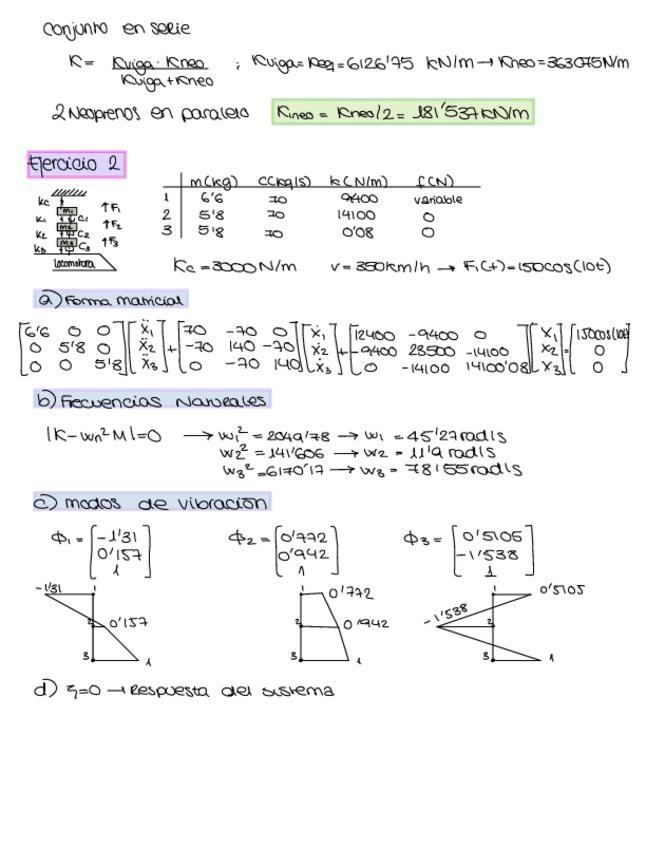 Conjunto en serie
K = Kviga · Kneo / Kviga + Kneo ; Kviga = Keq = 6126'75 kN/m → Kneo = 363075N/m
2 Neoprenos en paralelo K1neo = Kneo/2 = 181'537 kN/m
Ejercicio 2
m(kg) c(kg/s) k(N/m) f(N)
1 6'6 70 9400 variable
2 5'8 70 14100 0
3 5'8 70 0'08 0
Kc m1 ↑F1
K1 C1
m2 ↑F2
K2 C2
m3 ↑F3
K3 C3
locomotora
Kc = 3000 N/m v = 350 km/h → F1(t) = 150cos(10t)
a) Forma matricial
[6'6 0 0] [ẍ1] [70 -70 0] [ẋ1] [12400 -9400 0] [x1] [150cos(10t)]
[0 5'8 0] [ẍ2] + [-70 140 -70] [ẋ2] + [-9400 23500 -14100] [x2] = [0]
[0 0 5'8] [ẍ3] [0 -70 140] [ẋ3] [0 -14100 14100'08] [x3] [0]
b) Frecuencias Naturales
|K-wn²M|=0 → w1² = 2049'78 → w1 = 45'27 rad/s
w2² = 141'606 → w2 = 11'9 rad/s
w3² = 6170'17 → w3 = 78'55 rad/s
c) modos de vibración
ϕ1 = [-1'31 0'157 1] ϕ2 = [0'772 0'942 1] ϕ3 = [0'5105 -1'538 1]
-1'31 1 1 0'772 1 0'5105
2 0'157 2 0'942 -1'538 2
3 1 3 1 3 1
d) ξ=0 → Respuesta del sistema